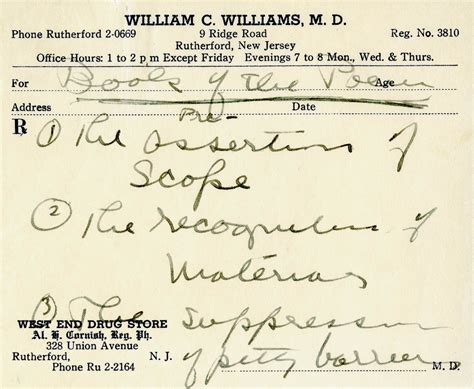 WILLIAM C. WILLIAMS, M. D.
Phone Rutherford 2-0669 9 Ridge Road Reg. No. 3810
Rutherford, New Jersey
Office Hours: 1 to 2 p m Except Friday Evenings 7 to 8 Mon., Wed. & Thurs.
For Book of the Poem Age
Address Date
Pre-
R ① The assertion of
Scope
② The recognition of
Materials
③ The suppression
of petty barrier
WEST END DRUG STORE
Al. H. Cornish, Reg. Ph.
328 Union Avenue
Rutherford, N. J.
Phone Ru 2-2164 M. D.